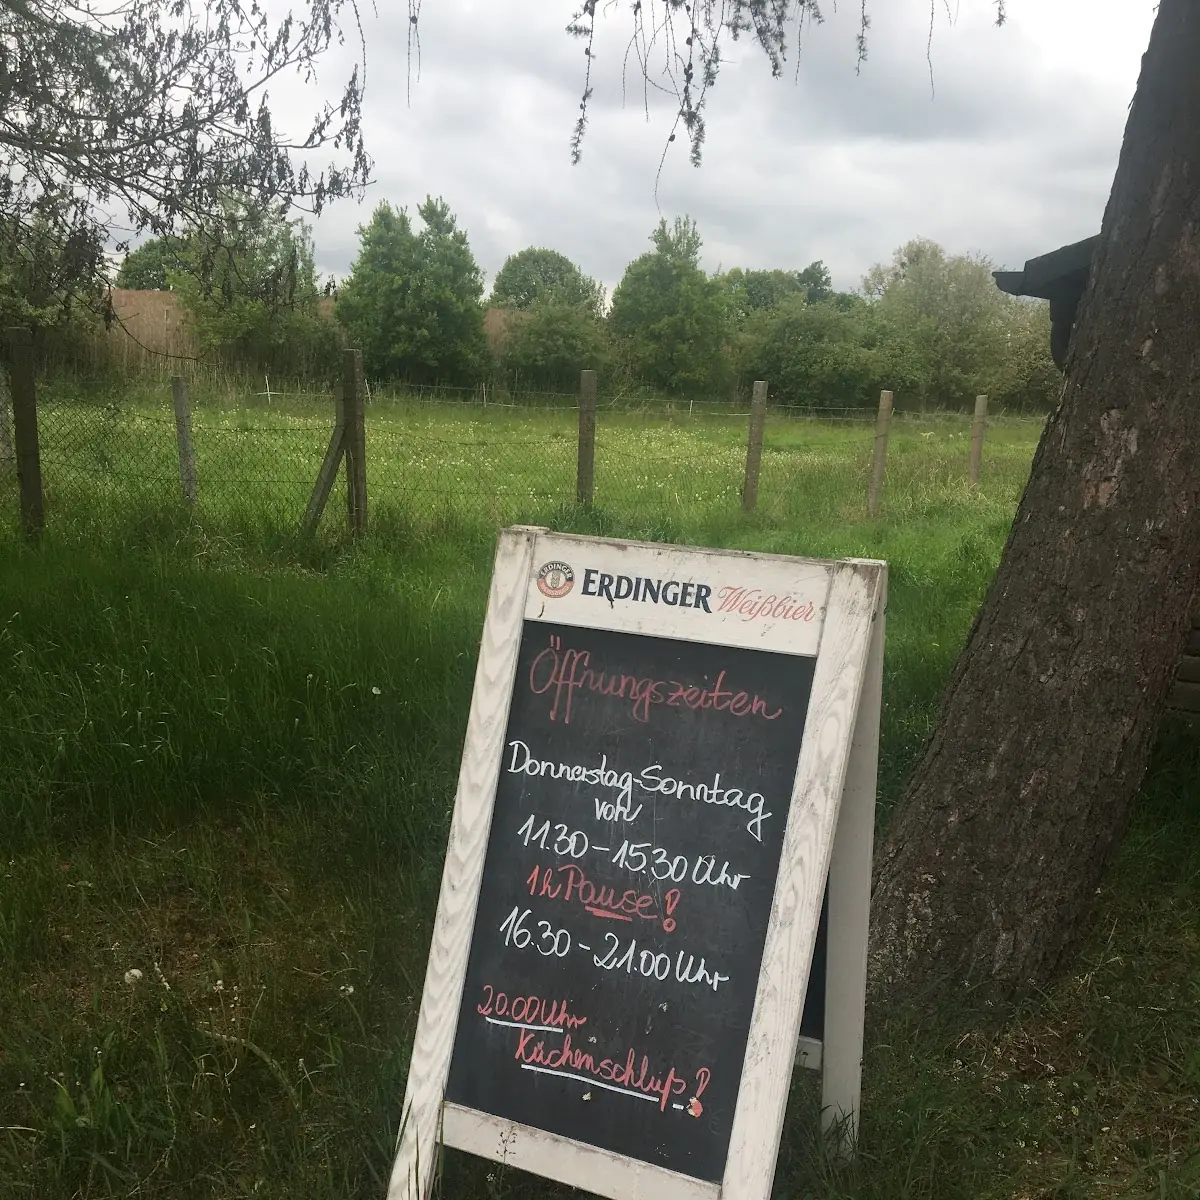 ERDINGER
ERDINGER Weißbier
Öffnungszeiten
Donnerstag-Sonntag
von
11.30-15.30 Uhr
1h Pause!
16.30-21.00 Uhr
20.00 Uhr
Küchenschluß!